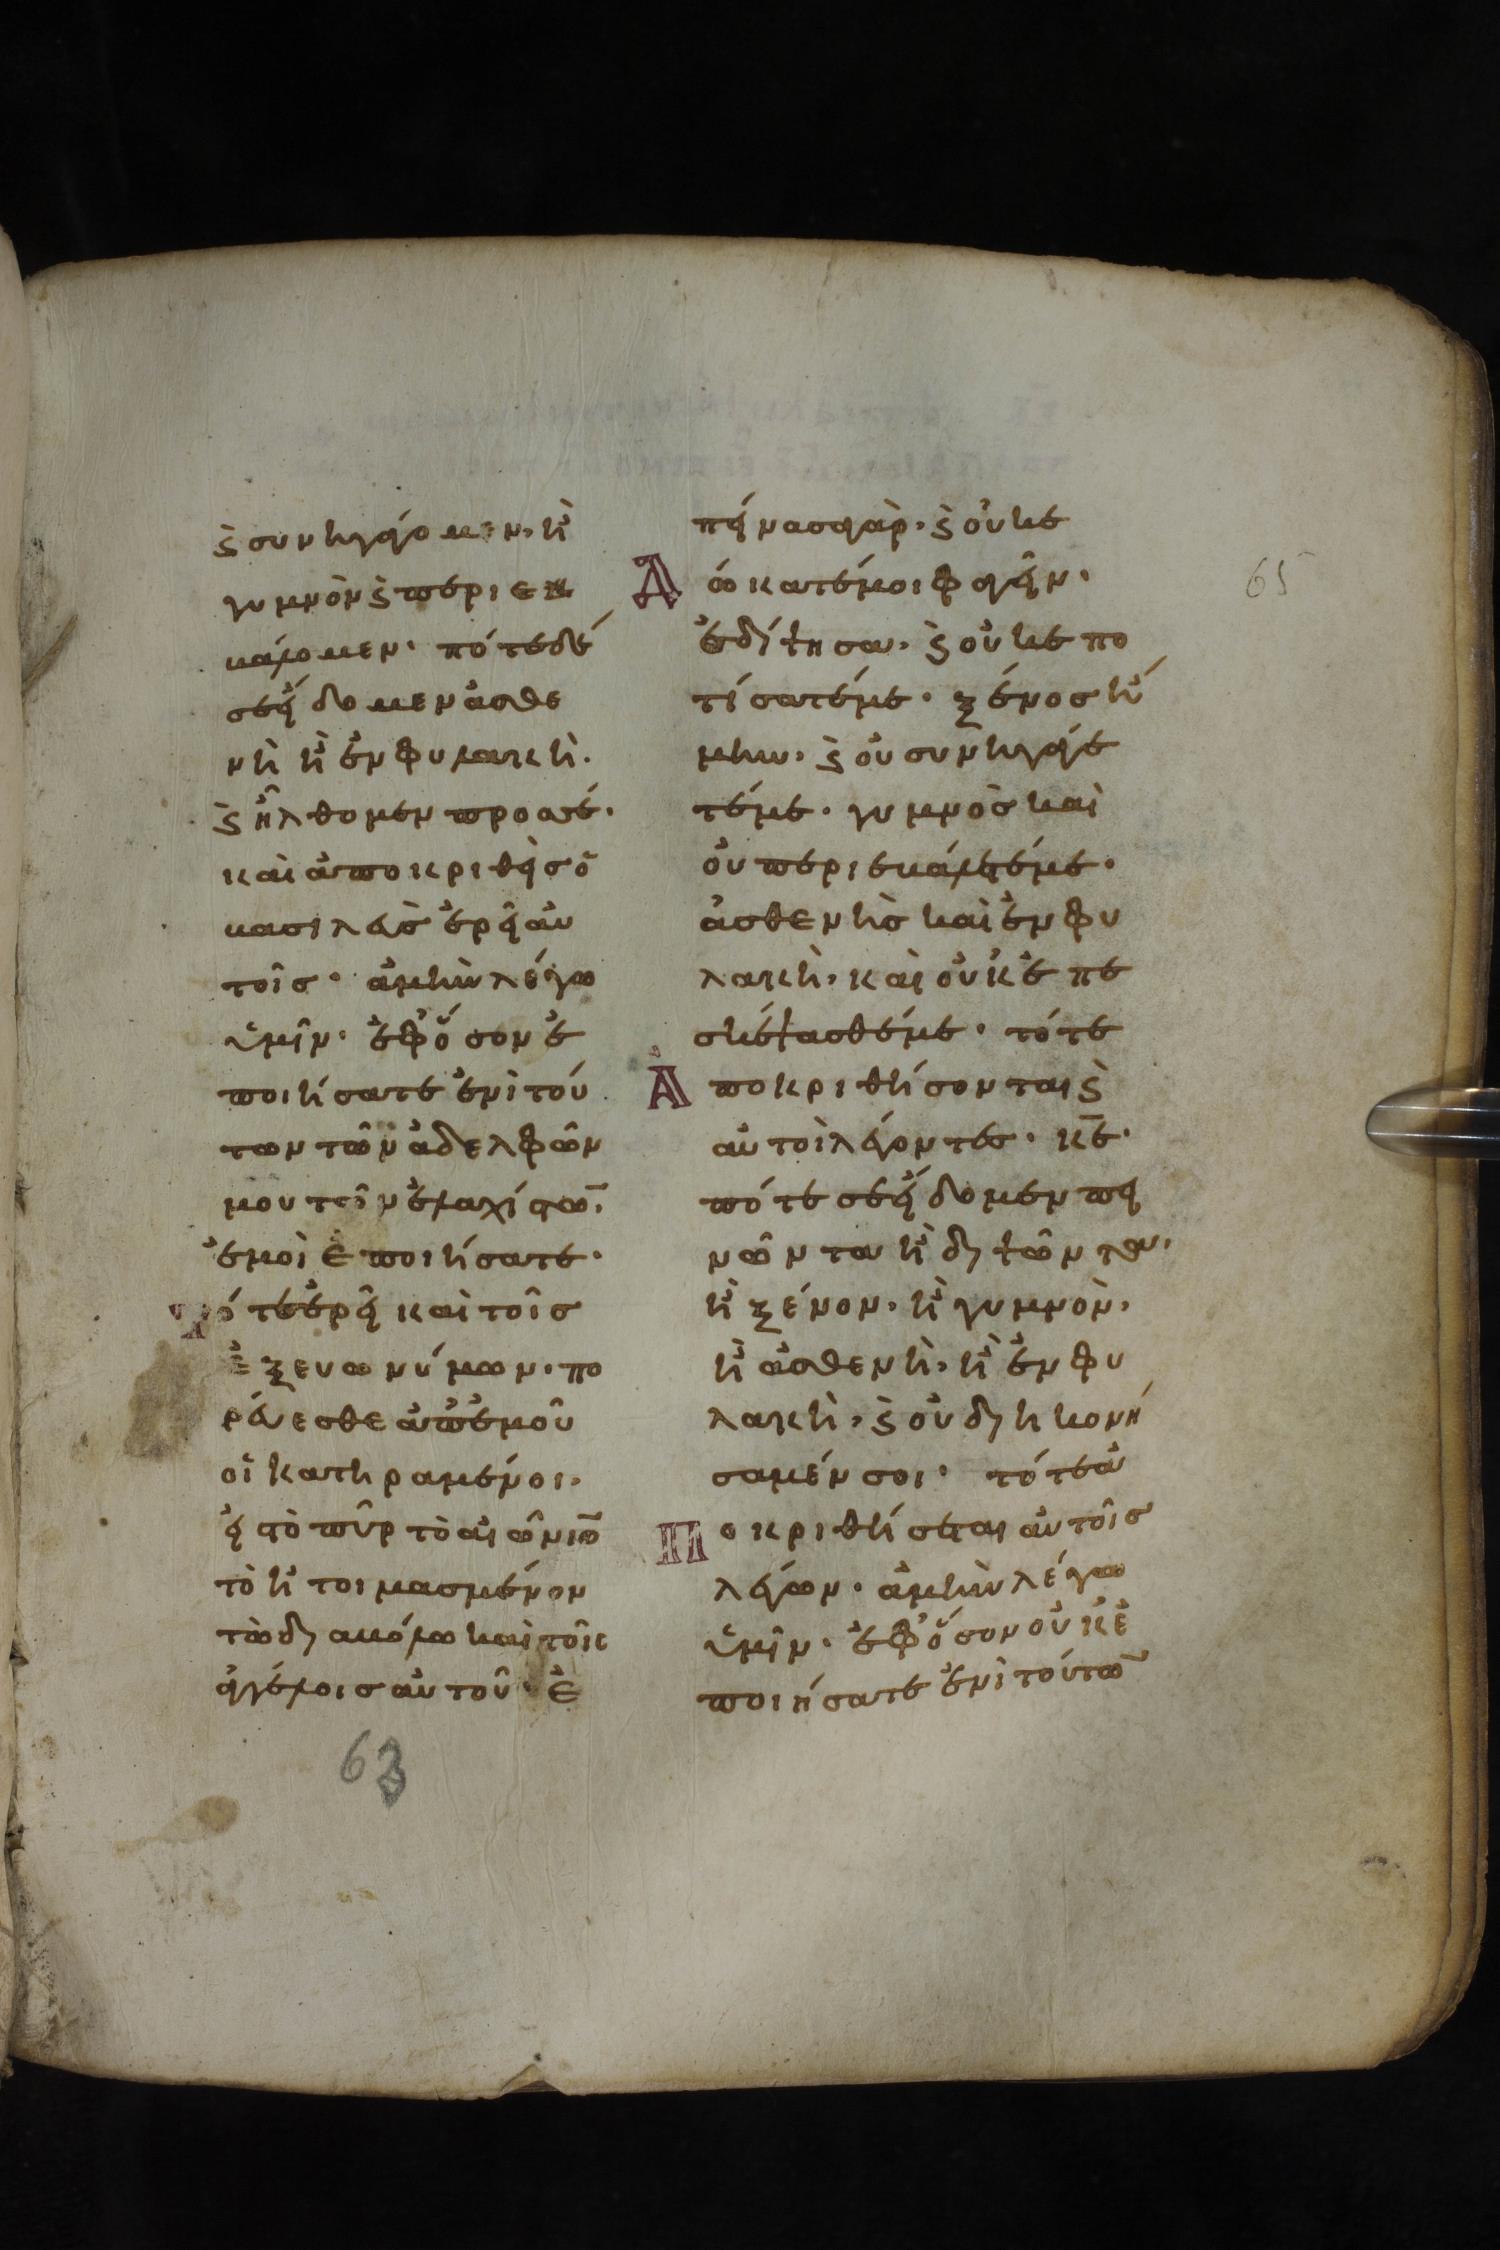 ϗ συνηγάγομεν· ἢ
γυμνὸν ϗ περιεβ
άλομεν· πότε δέ
σε εἴδομεν ἀσθε
νῆ ἢ ἐν φυλακῆ·
ϗ ἤλθομεν προς σέ·
καὶ ἀποκριθεὶς ὁ
βασιλεὺς ἐρεῖ αὐ
τοῖς· ἀμὴν λέγω
ὑμῖν· ἐφ' ὅσον ἐ
ποιήσατε ἐνὶ τού
των τῶν ἀδελφῶν
μου τῶν ἐλαχίστω̄·
ἐμοὶ ἐποιήσατε·
Τότε ἐρεῖ καὶ τοῖς
ἐξ εὐωνύμων· πο
ρεύεσθε ἀπ' ἐμοῦ
οἱ κατηραμένοι·
εἰς τὸ πῦρ τὸ αἰώνιο̄
τὸ ἡτοιμασμένον
τῶ διαβόλω καὶ τοῖς
ἀγγέλοις αὐτοῦ· ἐ
πείνασα γὰρ· ϗ οὐκ ἐ
Δώκατέ μοι φαγεῖν·
ἐδίψησα· ϗ οὐκ ἐπο
τίσατέ με· ξένος ἤ
μην· ϗ οὐ συνηγάγε
τέ με· γυμνὸς καὶ
οὐ περιεβάλετέ με·
ἀσθενὴς καὶ ἐν φυ
λακῆ· καὶ οὐκ ἐπε
σκέψασθέ με· τότε
Ἀποκριθήσονται ϗ
αὐτοὶ λέγοντες· κ̅ε̅·
πότε σε εἴδομεν πει
νῶντα ἢ διψῶντα·
ἢ ξένον· ἢ γυμνὸν·
ἢ ἀσθενῆ· ἢ ἐν φυ
λακῆ· ϗ οὐ διηκονή
σαμέν σοι· τότε ἀ
Ποκριθήσεται αὐτοῖς
λέγων· ἀμὴν λέγω
ὑμῖν· ἐφ' ὅσον οὐκ ἐ
ποιήσατε ἐνὶ τούτω̄
65
63